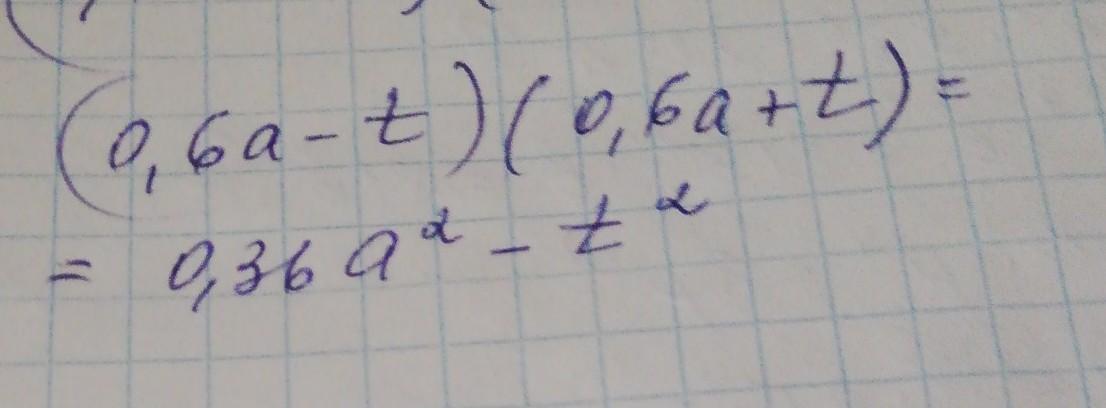 (0,6a - t)(0,6a + t) =
= 0,36a² - t²